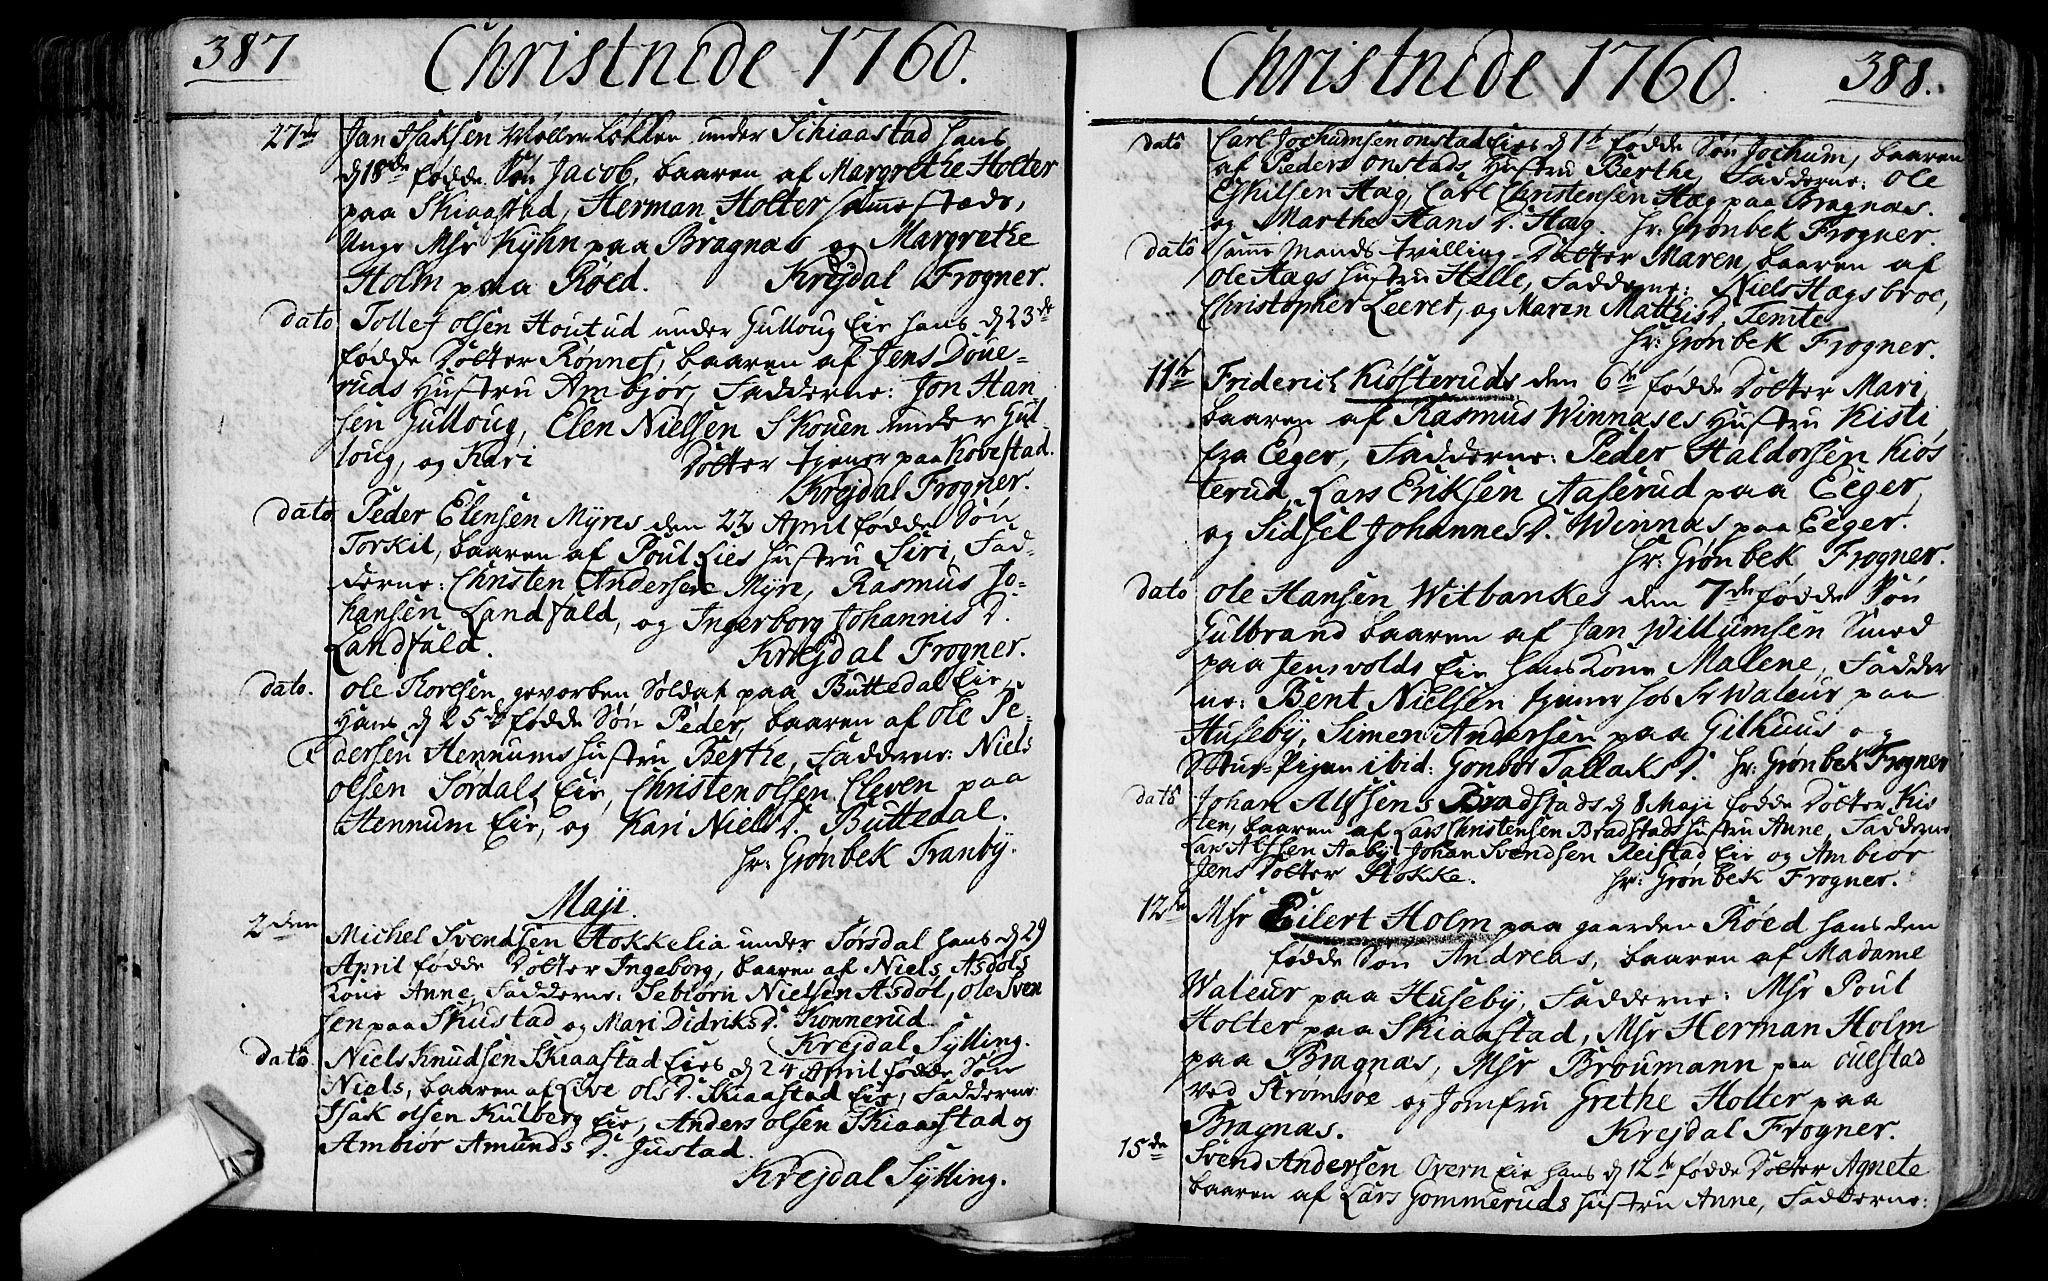 387
Christnede 1760.
27de Jan Isaksen Møller Løkken under Schiaastad hans
d 18de fødde Søn Jacob, baaren af Margrethe Holter
paa Skiaastad, Herman Holter sammestads,
Unge Msr Kyhn paa Bragnæs og Margrethe
Holm paa Røed. Krejdal Frogner.
dato Tollef Olsen Houtud under Gulloug Eie hans d 23de
fødde Dotter Rønnes, baaren af Jens Doue-
ruds Hustru Ambjør, Fadderne: Jon Han
sen Gulloug, Elen Nielsen Skouen under Gul
loug, og Kari Dotter tjener paa Kovestad.
Krejdal Frogner.
dato Peder Elensen Myres den 22 April fødde Søn
Torkil, baaren af Poul Lies Hustru Siri, Fad-
derne: Christen Andersen Myre, Rasmus Jo-
hansen Landfald, og Ingerborg Johannis D.
Landfald. Krejdal Frogner.
dato. Ole Koresen, gevorben Soldat paa Buttedal Eie,
Hans d 25de fødde Søn Peder, baaren af Ole Pe-
dersen Hennums Hustru Berthe, Fadderne: Niels
Olsen Sørdals Eie, Christen Olsen Eleven paa
Hennum Eie, og Kari Niels D. Buttedal.
Hr: Grønbek Tranby.
Maji.
2den Michel Svendsen Hokkelia under Sørsdal hans d 29
April fødde Dotter Ingeborg, baaren af Niels Asdøls
Kone Anne, Fadderne: Sebiørn Nielsen Asdøl, Ole Sven
sen paa Skustad og Mari Didriks D. Konnerud.
Krejdal Sylling.
dato Niels Knudsen Skiaastad Eies d 24 April fødde Søn
Niels, baaren af Live Ols D. Skiaastad Eie, Fadderne:
Isak Olsen Kulberg Eie, Anders Olsen Skiaastad og
Ambiør Amunds D. Justad.
Krejdal Sylling.
Christnede 1760. 388.
dato Carl Jochumsen Onstad Eies d 1ste fødde Søn Jochum, baaren
af Peder Onstads Hustru Berthe, Fadderne: Ole
Eskilsen Hæg, Carl Christensen Hæg paa Bragnæs.
og Marthe Hans D. Hæg. Hr: Grønbek Frogner.
dato samme Mands tvilling-Datter Maren, baaren af
Ole Hags Hustru Helle, Fadderne: Niels Hægsbroe,
Christopher Leeret, og Maren Matthis D. Temte
Hr: Grønbek Frogner.
11te Friderich Kiøsteruds den 6te fødde Dotter Mari,
baaren af Rasmus Winnæses Hustru Kisti,
fra Eeger, Fadderne: Peder Haldorsen Kiøs
terud, Lars Eriksen Aaserud paa Eeger,
og Sidsel Johannes D. Winnæs paa Eeger.
Hr: Grønbek Frogner.
dato Ole Hansen Witbankes den 7de fødde Søn
Gulbrand baaren af Jan Willumsen Smed
paa Jensvolds Eie hans Kone Mallene, Fadder
ne: Bent Nielsen tjener hos Sr Waleur paa
Huseby, Simen Andersen paa Gilhuus og
Stue-Pigen ibid: Gonbor Tallaks D. Hr: Grønbek Frogner
dato Johan Alfsens Bradstads d 8 Maji fødde Dotter Kis
ten, baaren af Lars Christensen Bradstads Hustru Anne, Fadderne
Lars Alfsen Aaby, Johan Svendsen Reistad Eie og Ambiør
Jens Dotter Stokke. Hr: Grønbek Frogner.
12te Msr Eilert Holm paa gaarden Røed hans den
fødde Søn Andreas, baaren af Madame
Waleur paa Huseby, Fadderne: Msr Poul
Holter paa Skiaastad, Msr Herman Holm
paa Bragnæs, Msr Broumann paa Ouestad
ved Strømsøe og Jomfru Grethe Holter paa
Bragnæs. Krejdal Frogner.
15de Svend Andersen Overn Eie hans d 12te fødde Dotter Agnete
baaren af Lars Gommeruds Hustru Anne, Fadderne: